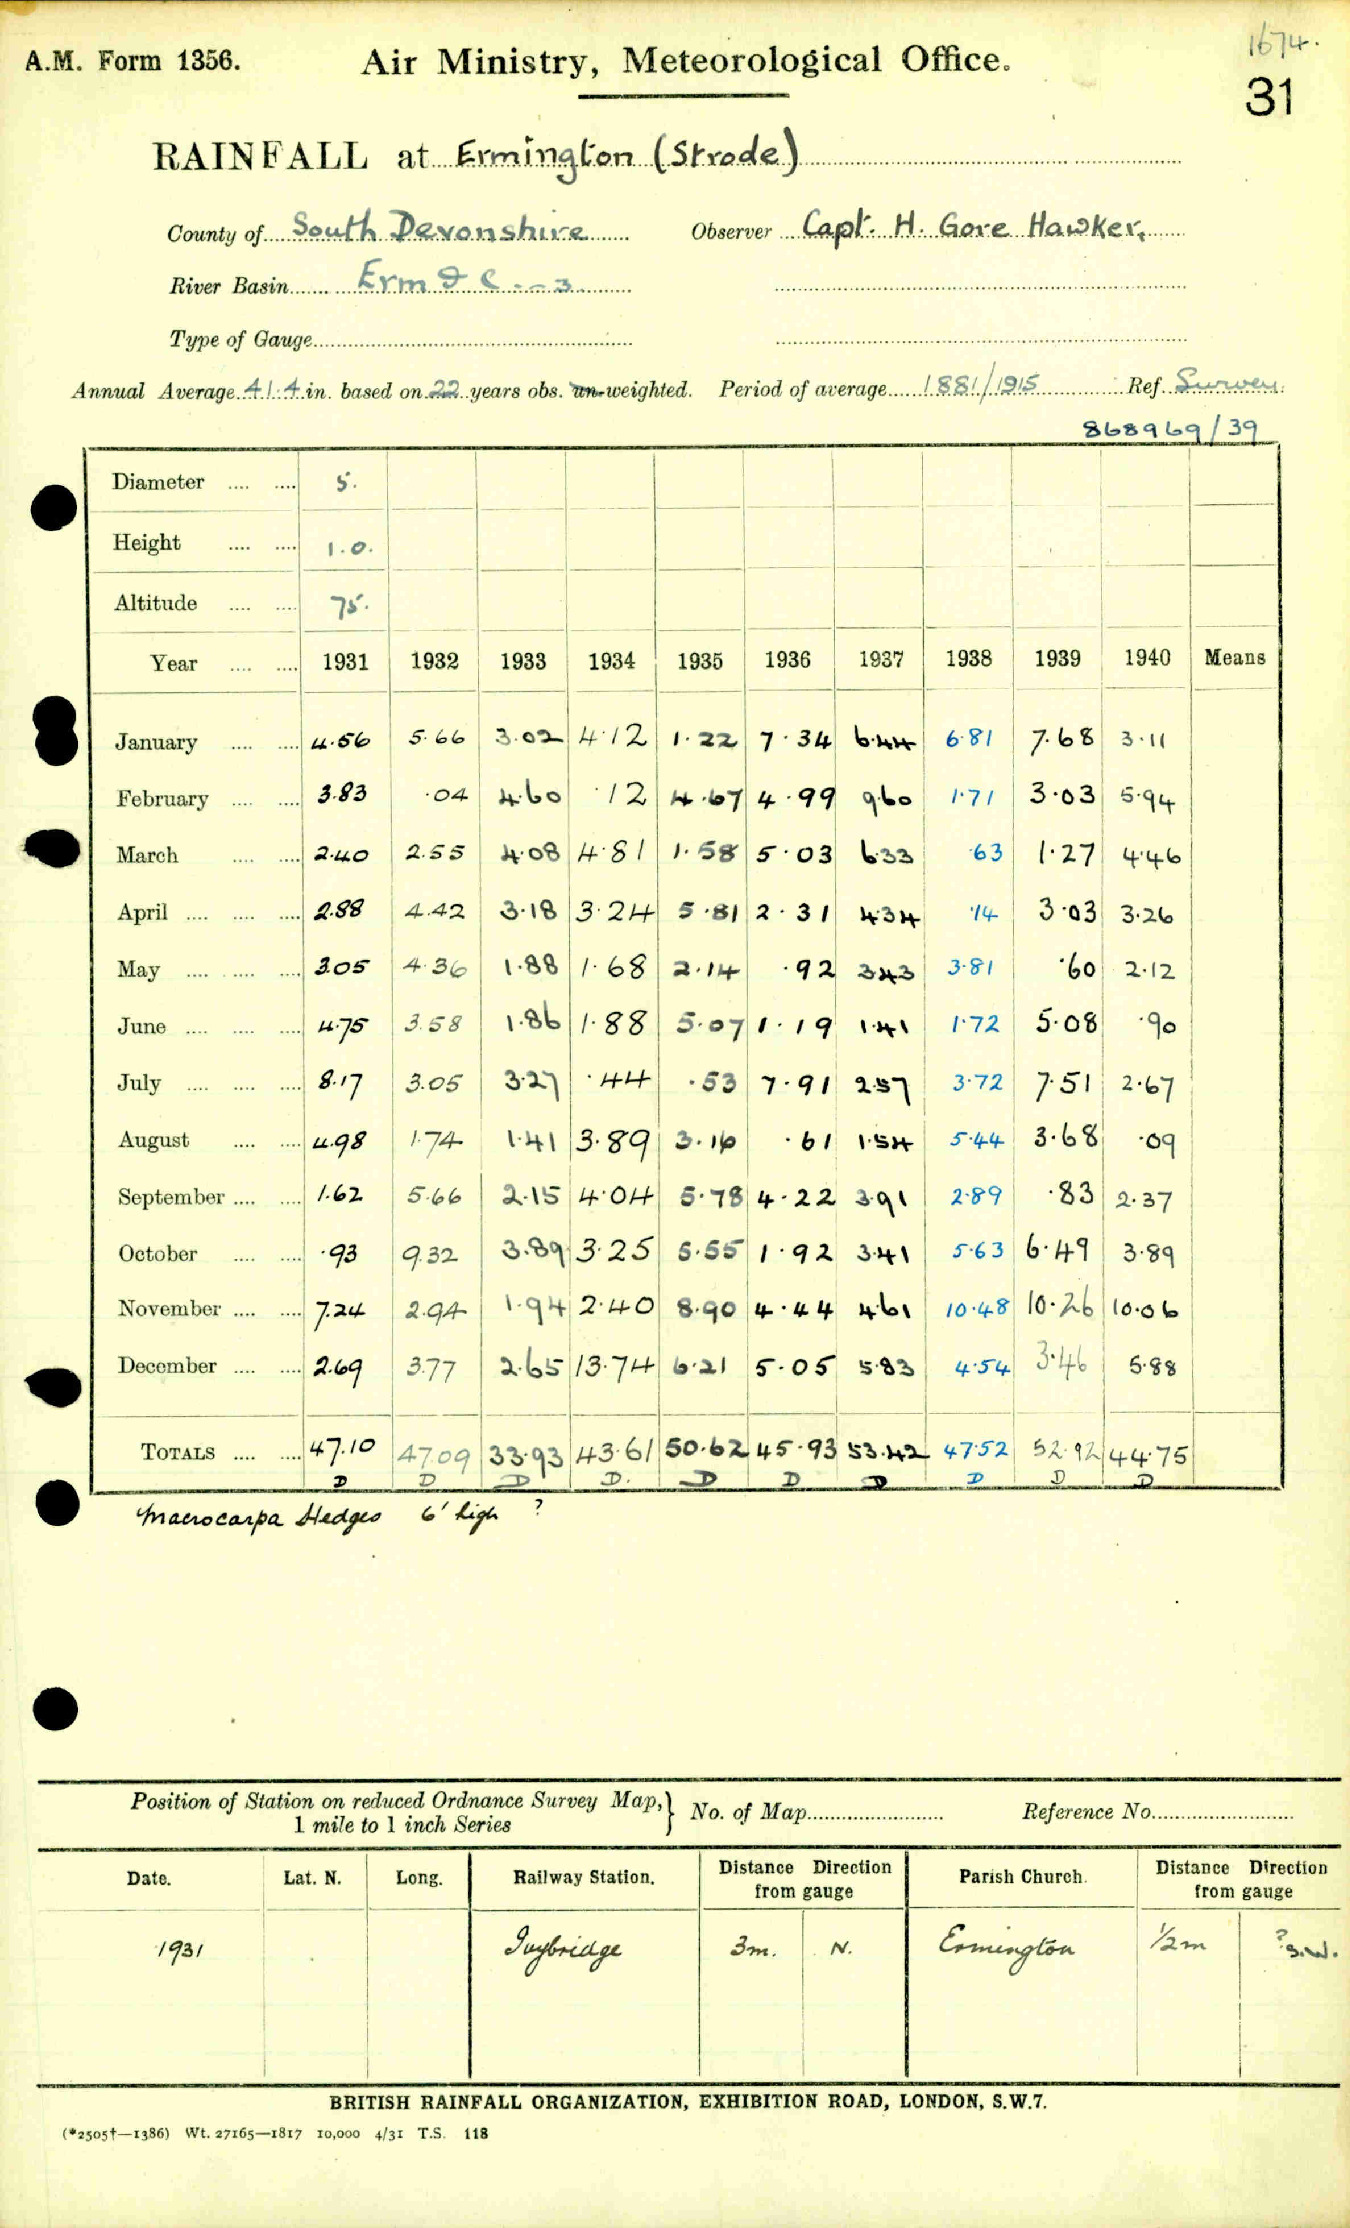 1674.
A.M. Form 1356. Air Ministry, Meteorological Office.
31
RAINFALL at Ermington (Strode)
County of South Devonshire Observer Capt. H. Gore Hawker.
River Basin Erm & C - - 3
Type of Gauge
Annual Average 41.4 in. based on 22 years obs. un-weighted. Period of average 1881/1915 Ref. Survey.
868969/39
Diameter .... .... 5.
Height .... .... 1.0.
Altitude .... .... 75.
Year .... .... 1931 1932 1933 1934 1935 1936 1937 1938 1939 1940 Means
January .... .... 4.56 5.66 3.02 4.12 1.22 7.34 6.44 6.81 7.68 3.11
February .... .... 3.83 .04 4.60 .12 4.67 4.99 9.60 1.71 3.03 5.94
March .... .... 2.40 2.55 4.08 4.81 1.58 5.03 6.33 .63 1.27 4.46
April .... .... .... 2.88 4.42 3.18 3.24 5.81 2.31 4.34 .14 3.03 3.26
May .... .... .... 3.05 4.36 1.88 1.68 2.14 .92 3.43 3.81 .60 2.12
June .... .... .... 4.75 3.58 1.86 1.88 5.07 1.19 1.41 1.72 5.08 .90
July .... .... .... 8.17 3.05 3.27 .44 .53 7.91 2.57 3.72 7.51 2.67
August .... .... 4.98 1.74 1.41 3.89 3.16 .61 1.54 5.44 3.68 .09
September .... .... 1.62 5.66 2.15 4.04 5.78 4.22 3.91 2.89 .83 2.37
October .... .... .93 9.32 3.89 3.25 5.55 1.92 3.41 5.63 6.49 3.89
November .... .... 7.24 2.94 1.94 2.40 8.90 4.44 4.61 10.48 10.26 10.06
December .... .... 2.69 3.77 2.65 13.74 6.21 5.05 5.83 4.54 3.46 5.88
TOTALS .... .... 47.10 47.09 33.93 43.61 50.62 45.93 53.42 47.52 52.92 44.75
D D D D. D D D D D D
Macrocarpa Hedges 6' high ?
Position of Station on reduced Ordnance Survey Map,} No. of Map Reference No.
1 mile to 1 inch Series
Date. Lat. N. Long. Railway Station. Distance Direction from gauge Parish Church. Distance Direction from gauge
1931 Ivybridge 3m. N. Ermington ½m ?S.W.
BRITISH RAINFALL ORGANIZATION, EXHIBITION ROAD, LONDON, S.W.7.
(*2505†—1386) Wt. 27165—1817 10,000 4/31 T.S. 118